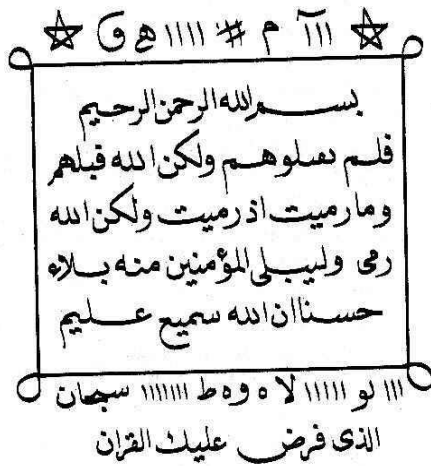 ☆ ااآ م # اااا ھ و ☆
بسم الله الرحمن الرحيم
فلم تقتلوهم ولكن الله قتلهم
وما رميت اذ رميت ولكن الله
رمى وليبلى المؤمنين منه بلاء
حسنا ان الله سميع عليم
ااا لو ااااا لا ه و ه ط ااااااا سبحان
الذى فرض عليك القران